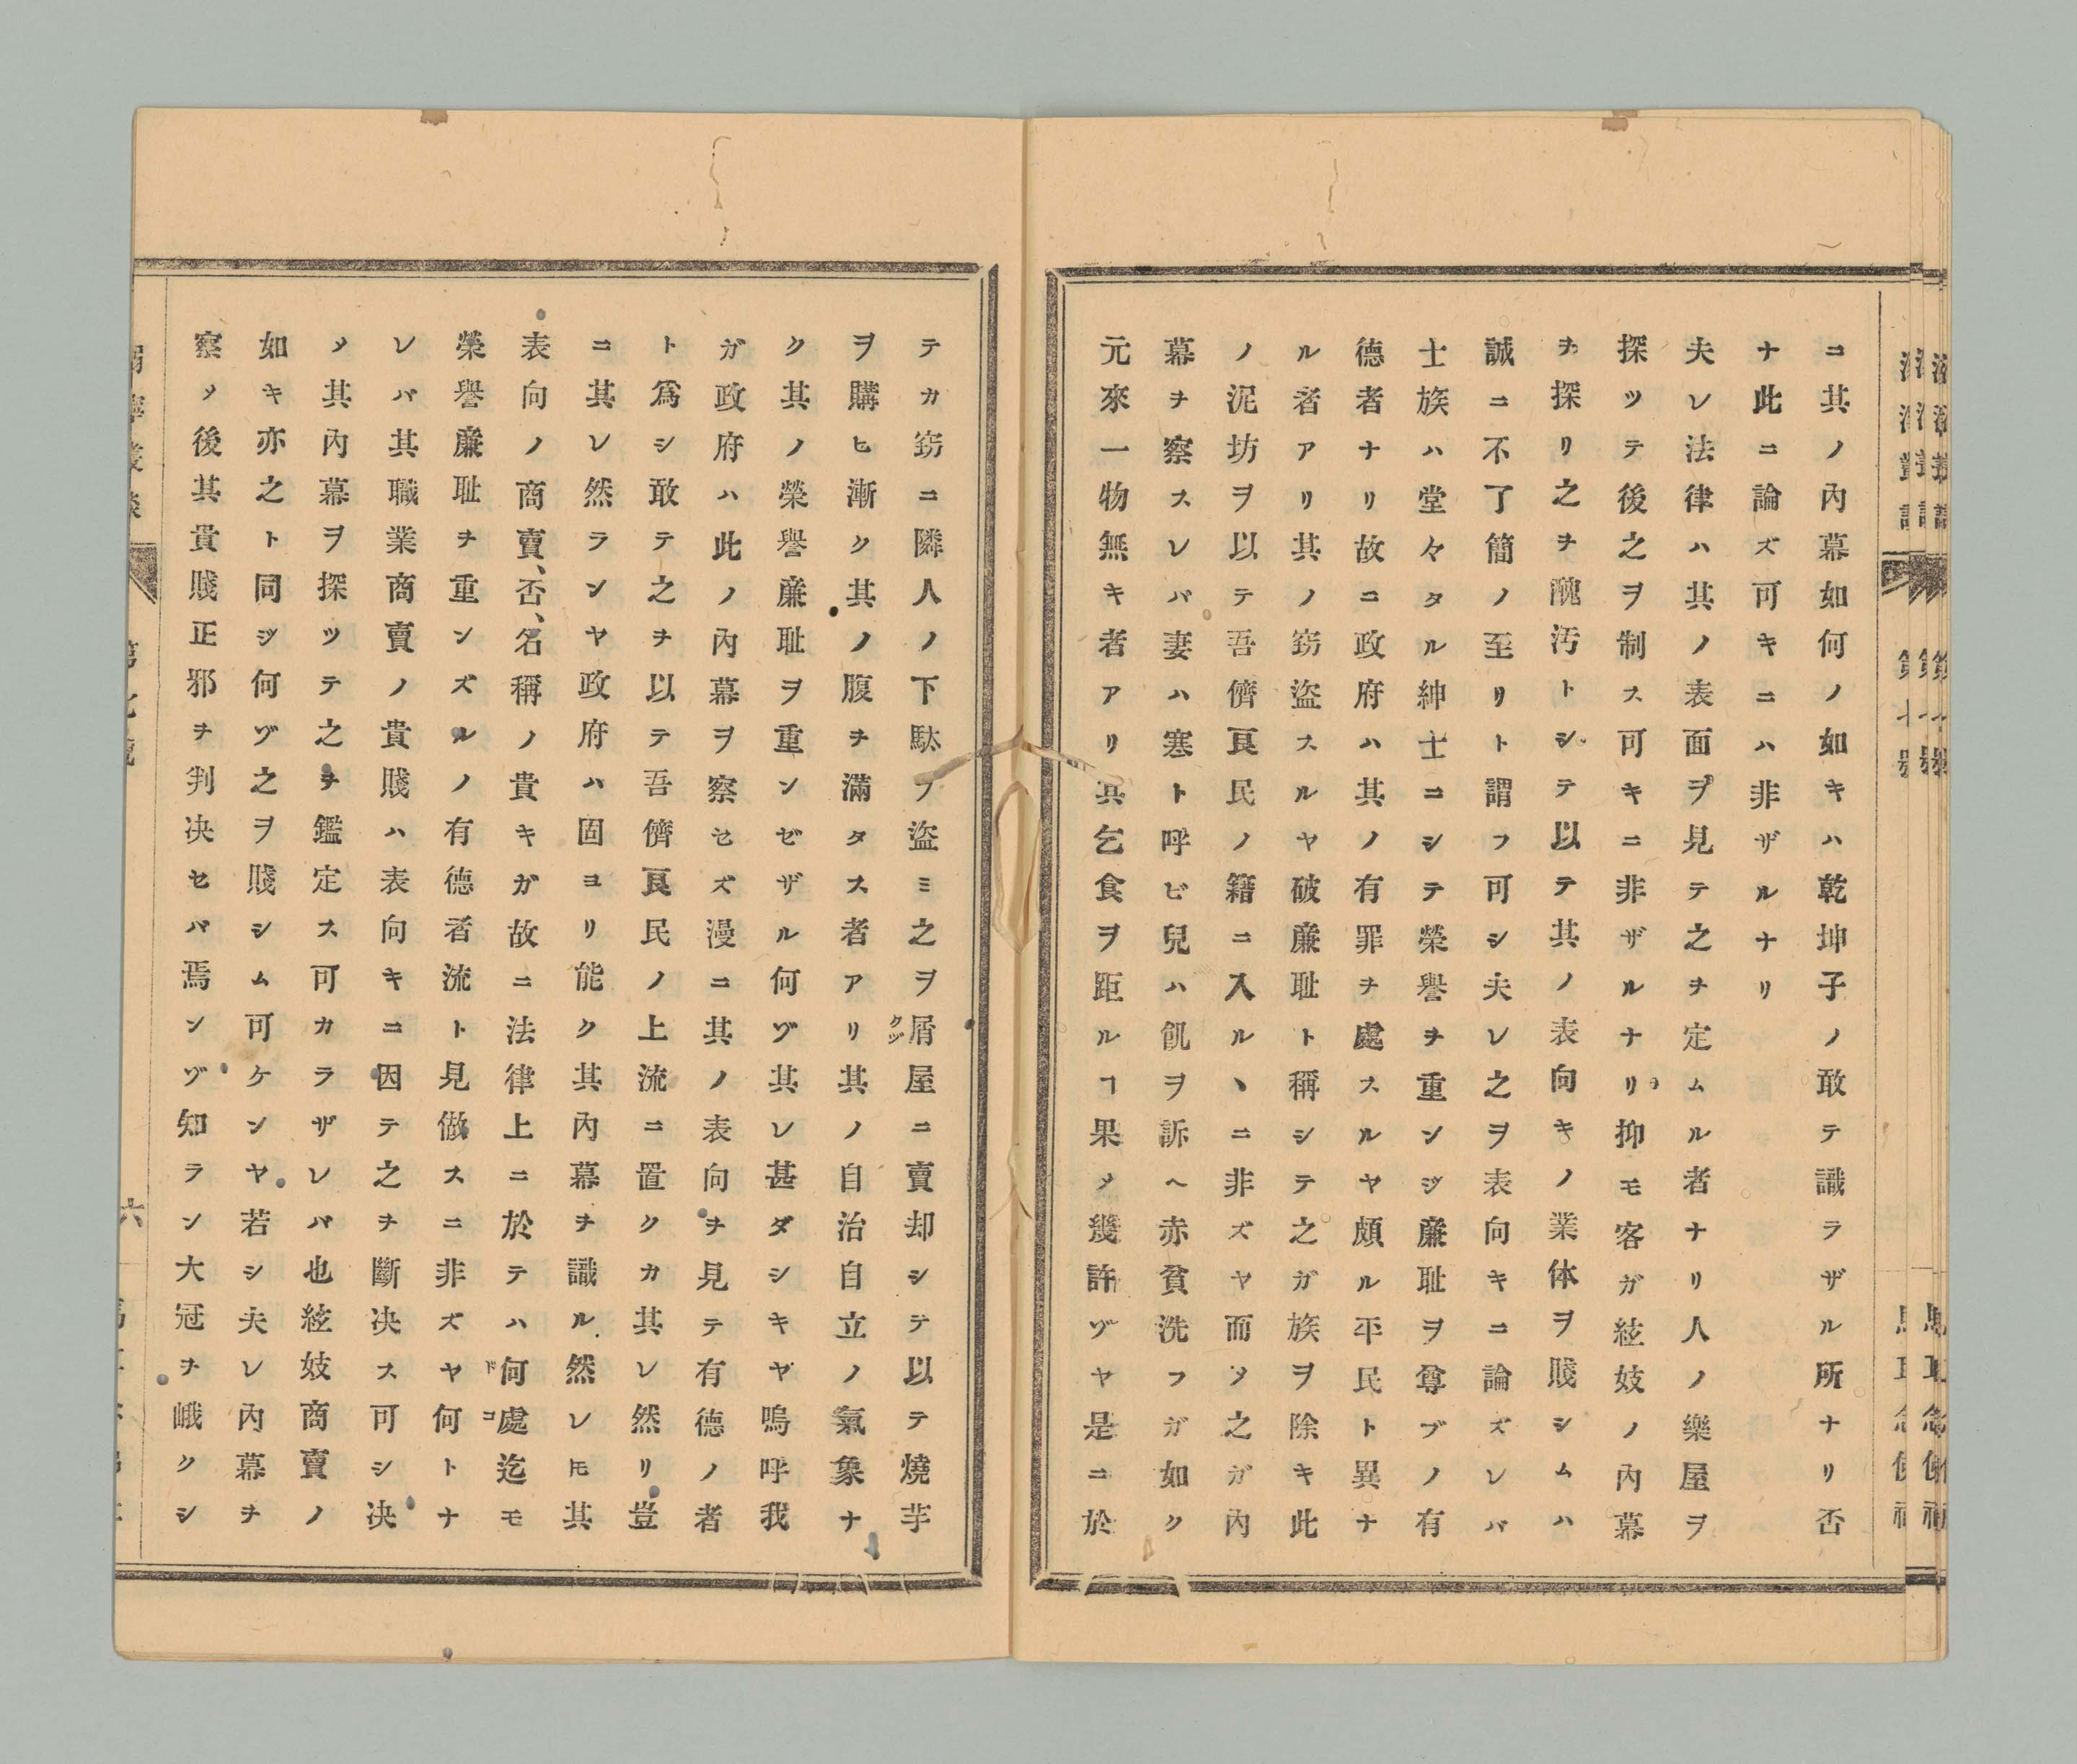 ニ其ノ內幕如何ノ如キハ乾坤子ノ敢テ識ラザル所ナリ否
ナ此ニ論ズ可キニハ非ザルナリ
夫レ法律ハ其ノ表面ヲ見テ之ヲ定ムル者ナリ人ノ樂屋ヲ
探ツテ後之ヲ制ス可キニ非ザルナリ抑モ客ガ絃妓ノ內幕
ヲ探リ之ヲ醜汚トシテ以テ其ノ表向キノ業体ヲ賤シムハ
誠ニ不了簡ノ至リト謂フ可シ夫レ之ヲ表向キニ論ズレバ
士族ハ堂々タル紳士ニシテ榮譽ヲ重ンジ廉耻ヲ尊ブノ有
德者ナリ故ニ政府ハ其ノ有罪ヲ處スルヤ頗ル平民ト異ナ
ル者アリ其ノ窃盜スルヤ破廉耻ト稱シテ之ガ族ヲ除キ此
ノ泥坊ヲ以テ吾儕良民ノ籍ニ入ルヽニ非ズヤ而メ之ガ內
幕ヲ察スレバ妻ハ寒ト呼ビ兒ハ飢ヲ訴ヘ赤貧洗フガ如ク
元來一物無キ者アリ其乞食ヲ距ルヿ果メ幾許ゾヤ是ニ於
テカ窃ニ隣人ノ下駄ヲ盜ミ之ヲ屑屋ニ賣却シテ以テ燒芋
クヅ
ヲ購ヒ漸ク其ノ腹ヲ滿タス者アリ其ノ自治自立ノ氣象ナ
ク其ノ榮譽廉耻ヲ重ンゼザル何ゾ其レ甚ダシキヤ嗚呼我
ガ政府ハ此ノ內幕ヲ察セズ漫ニ其ノ表向ヲ見テ有德ノ者
ト爲シ敢テ之ヲ以テ吾儕良民ノ上流ニ置クカ其レ然リ豈
ニ其レ然ランヤ政府ハ固ヨリ能ク其內幕ヲ識ル然レ𪜈其
表向ノ商賣、否、名稱ノ貴キガ故ニ法律上ニ於テハ何處迄モ
ドコ
榮譽廉耻ヲ重ンズルノ有德者流ト見做スニ非ズヤ何トナ
レバ其職業商賣ノ貴賤ハ表向キニ因テ之ヲ斷决ス可シ决
メ其內幕ヲ探ツテ之ヲ鑑定ス可カラザレバ也絃妓商賣ノ
如キ亦之ト同ジ何ゾ之ヲ賤シム可ケンヤ若シ夫レ內幕ヲ
察メ後其貴賤正邪ヲ判决セバ焉ンゾ知ラン大冠ヲ峨クシ
六